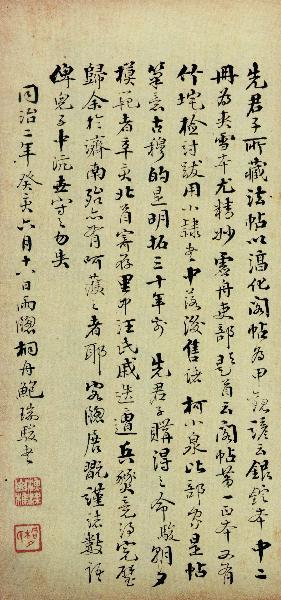 先君子所藏法帖以淳化閣帖為甲觀諺云銀錠本中二
冊為夾雪本尤精妙虛舟吏部題首云閣帖第一正本又有
竹垞檢討跋用小隸書中落後售諸柯小泉比部家是帖
筆意古穆的是明拓三十年前先君子購得之命駿朝夕
模範者辛亥北首寄存里中汪氏戚迭遭兵燹竟得完璧
歸余於濟南殆亦有呵護之者耶客牕展翫謹法數語
俾兒子中沅世守之勿失
同治二年癸亥六月十八日雨牕桐舟鮑瑞駿書